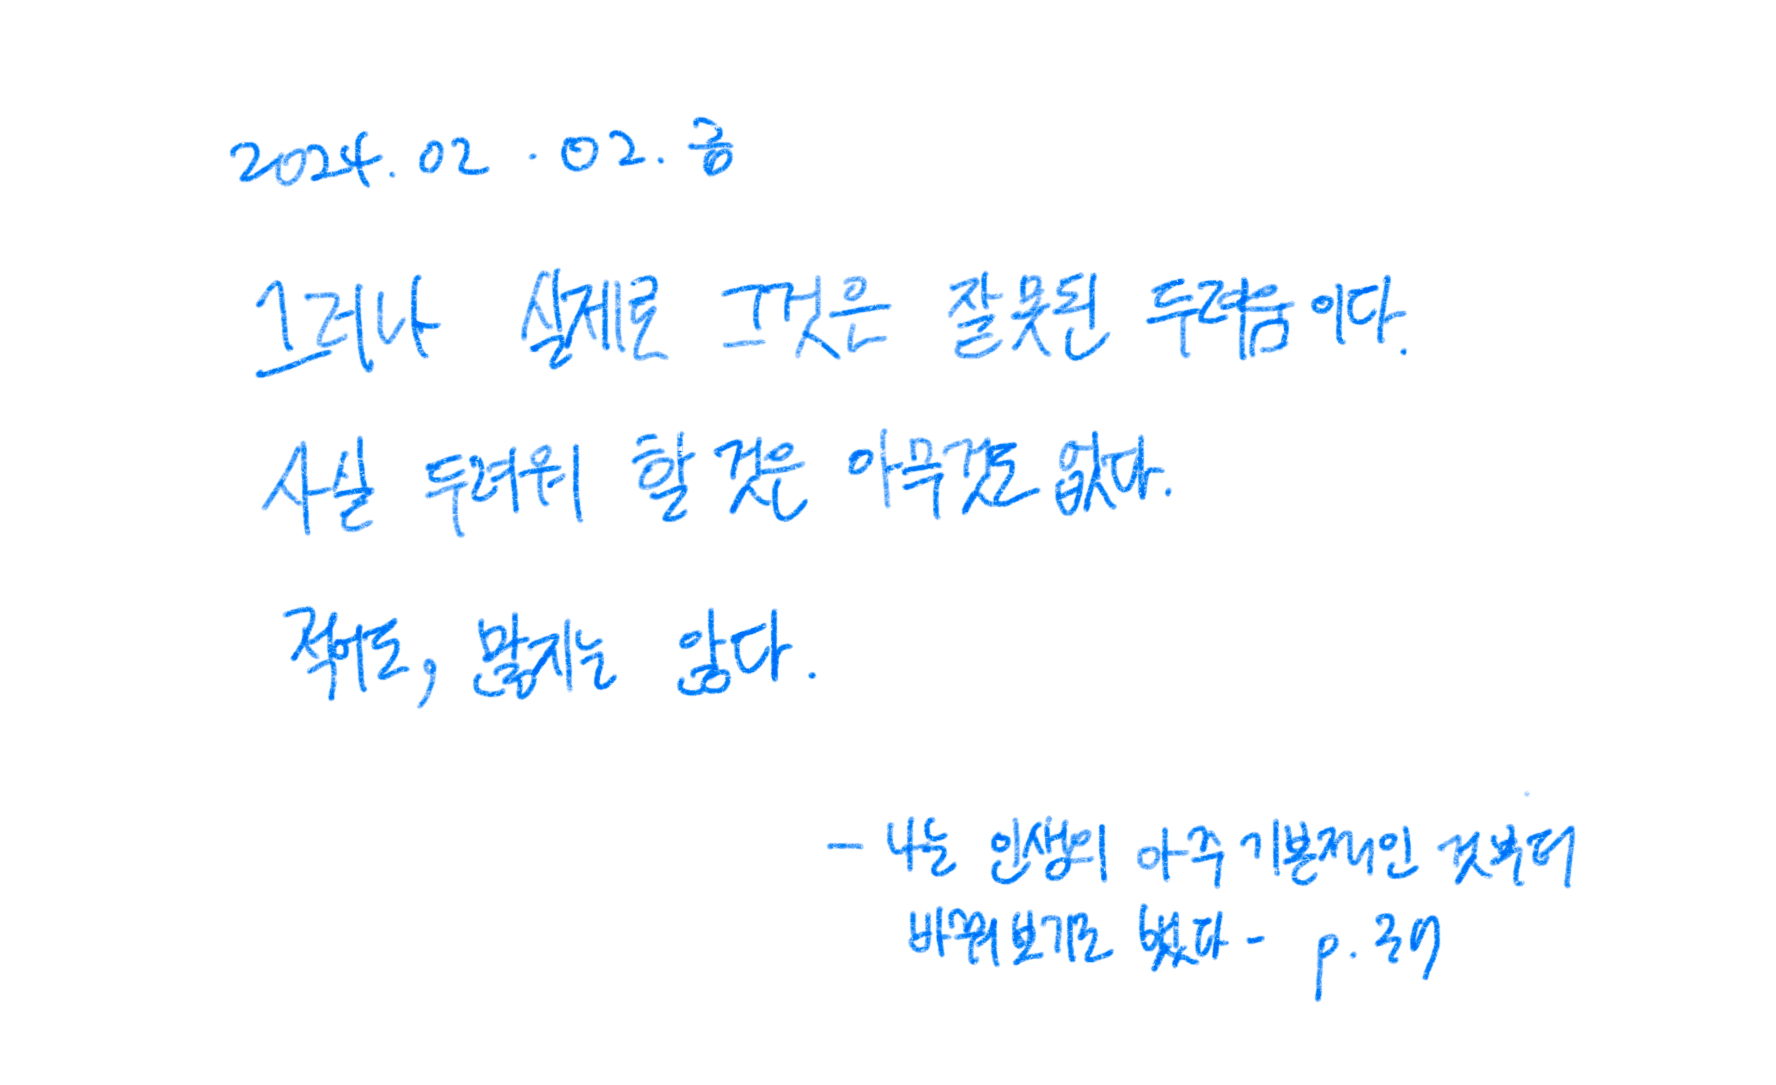 2024. 02. 02. 금
그러나 실제로 그것은 잘못된 두려움이다.
사실 두려워 할 것은 아무것도 없다.
적어도, 많지는 않다.
- 나는 인생의 아주 기본적인 것부터
바꿔보기로 했다 - p. 39